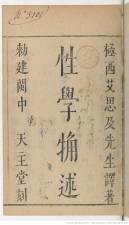 極西艾思及先生譯著
性學觕述
勅建閩中 天主堂刻